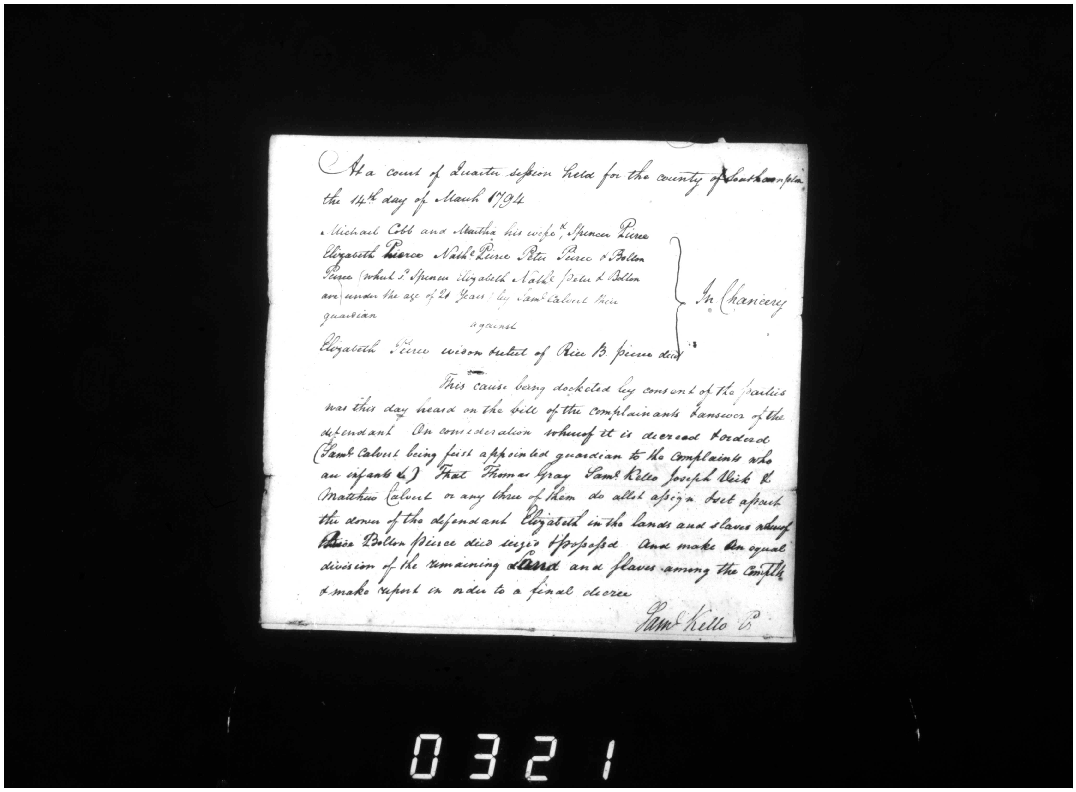 At a court of Quarter session held for the county of Southampton
the 14th day of March 1794
Michael Cobb and Martha his wife Spencer Pierce
Elizabeth Pierce Nathl Pierce Peter Pierce & Bolton
Pierce (which Sd Spencer Elizabeth Nathl Peter & Bolton
are under the age of 21 Years) by Saml Calvert their
guardian
against
In Chancery
Elizabeth Pierce widow & relict of Rice B. Pierce decd
This cause being docketed by consent of the parties
was this day heard on the bill of the complainants & answer of the
defendant On consideration whereof it is decreed & orderd
(Saml Calvert being first appointed guardian to the complaints who
are infants &) That Thomas Gray Saml Kello Joseph Vick &
Matthew Calvert or any three of them do allot assign & set apart
the dower of the defendant Elizabeth in the lands and slaves whereof
Rice Bolton Pierce died seized & possessd And make an equal
division of the remaining Land and slaves among the Complts
& make report in order to a final decree
Saml Kello C
0321